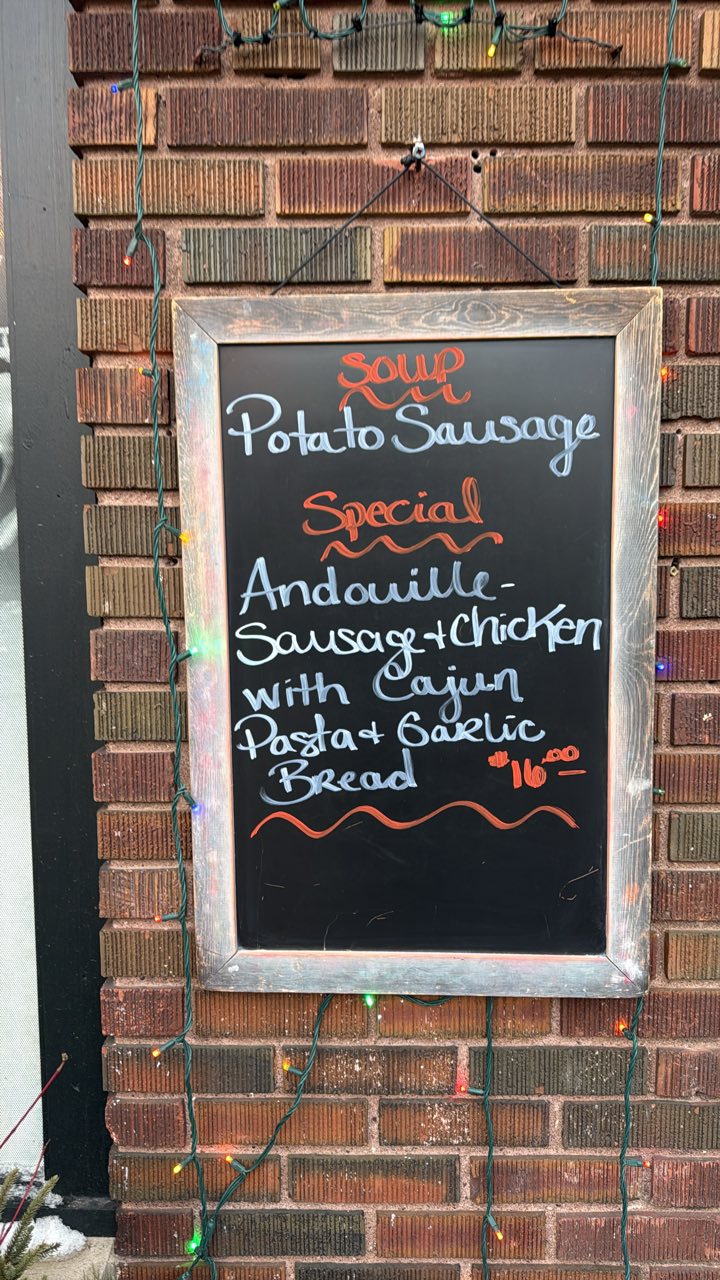 Soup
Potato Sausage
Special
Andouille-
Sausage + Chicken
with Cajun
Pasta + Garlic
Bread $16.00